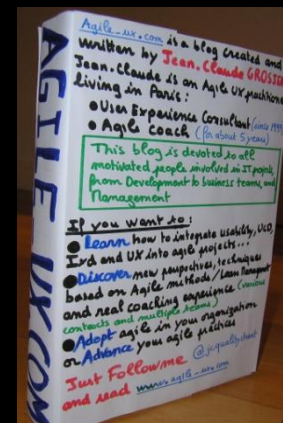 AGILE-UX.COM
Agile-ux.com is a blog created and
written by Jean-Claude GROSJEAN
Jean-Claude is an Agile UX practitioner
living in Paris:
•User Experience Consultant (since 1999)
•Agile Coach (for about 5 years)
This blog is devoted to all
motivated people involved in IT projects,
from Development to business teams, and
Management
If you want to:
•Learn how to integrate usability, UCD,
IxD and UX into agile projects...
•Discover new perspectives, techniques
based on Agile methods / Lean Management
and real coaching experience (various
contexts and multiple teams)
•Adopt agile in your organization
or Advance your agile practices
Just Follow me @jcqualitystreet
and read www.agile-ux.com